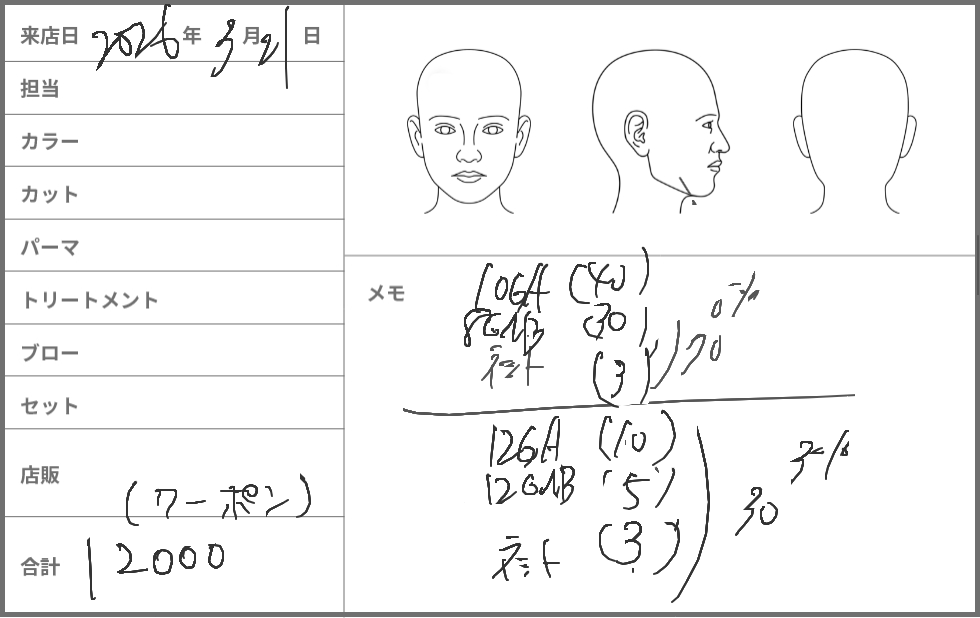 来店日 2026年 3月21日
担当
カラー
カット
パーマ
トリートメント
ブロー
セット
店販
(クーポン)
合計 12000
メモ
10GA (40)
8GNB (30)
(3)
12GA (10)
12GNB (5)
(3)
30
3%